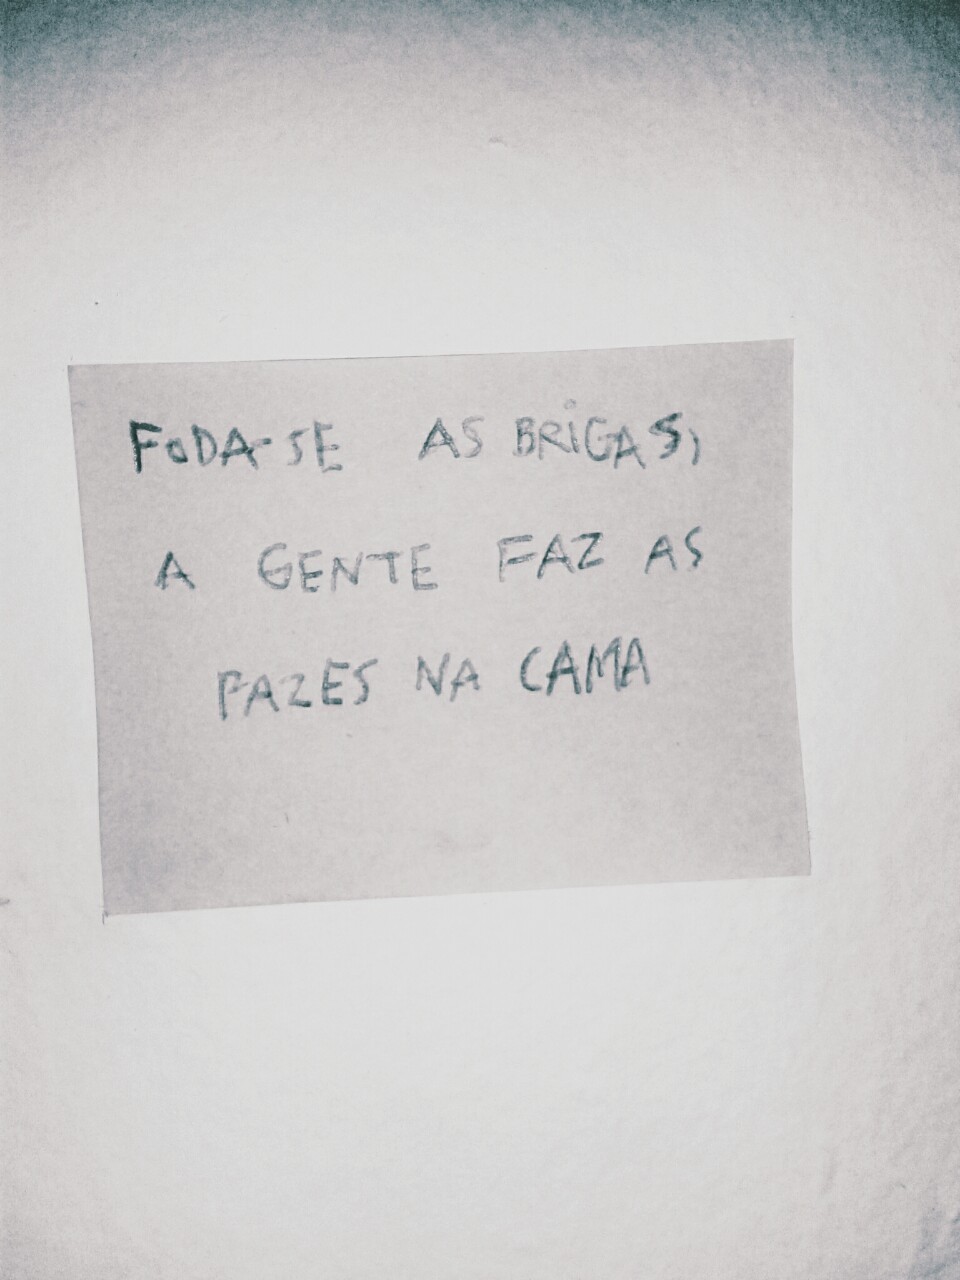 FODA-SE AS BRIGAS,
A GENTE FAZ AS
PAZES NA CAMA